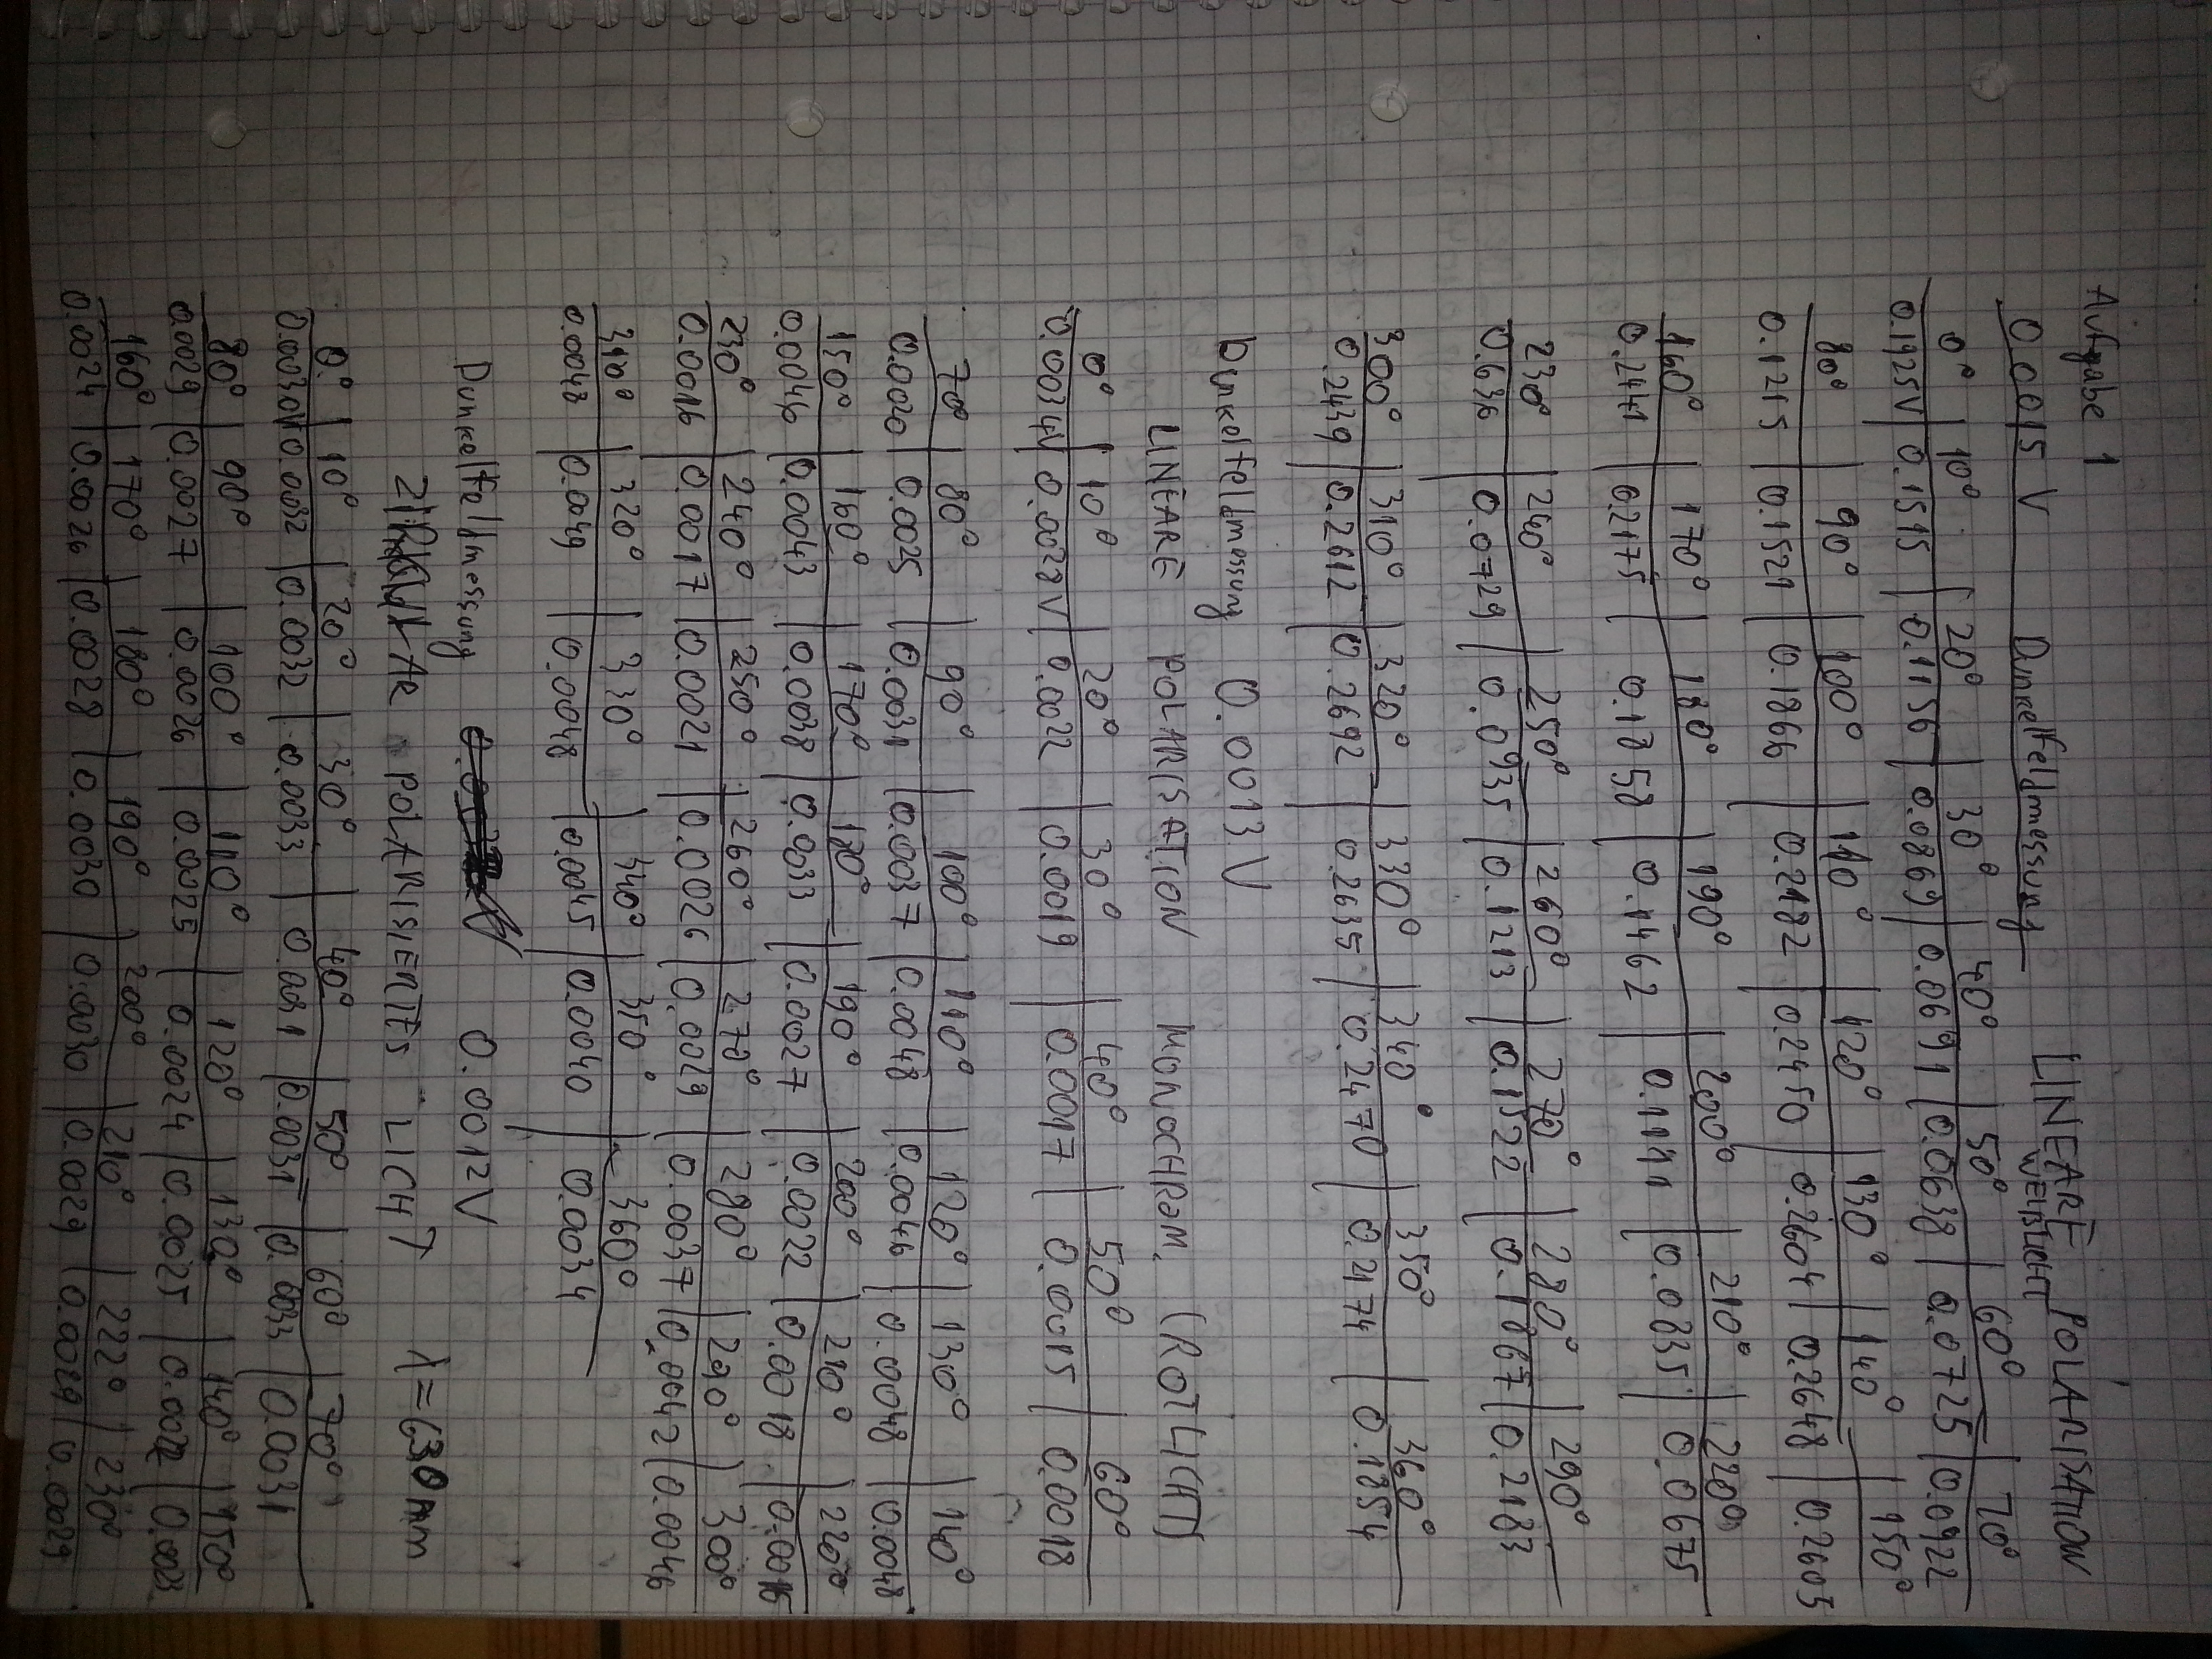 Aufgabe 1
0.0015 V Dunkelfeldmessung LINEARE POLARISATION
WEIßLICHT
0° 10° 20° 30° 40° 50° 60° 70°
0.1925V 0.1515 0.1156 0.0869 0.0691 0.0638 0.0725 0.0922
80° 90° 100° 110° 120° 130° 140° 150°
0.1215 0.1521 0.1866 0.2182 0.2450 0.2604 0.2648 0.2605
160° 170° 180° 190° 200° 210° 220°
0.2441 0.2175 0.1858 0.1462 0.1111 0.0835 0.0675
230° 240° 250° 260° 270° 280° 290°
0.636 0.0729 0.0935 0.1213 0.1522 0.1867 0.2183
300° 310° 320° 330° 340° 350° 360°
0.2439 0.2612 0.2692 0.2635 0.2470 0.2174 0.1854
Dunkelfeldmessung 0.0013 V
LINEARE POLARISATION MONOCHROM. (ROTLICHT)
0° 10° 20° 30° 40° 50° 60°
0.0034V 0.0028V 0.0022 0.0019 0.0017 0.0015 0.0018
70° 80° 90° 100° 110° 120° 130° 140°
0.0020 0.0025 0.0031 0.0037 0.0048 0.0046 0.0048 0.0048
150° 160° 170° 180° 190° 200° 210° 220°
0.0046 0.0043 0.0038 0.0033 0.0027 0.0022 0.0018 0.0016
230° 240° 250° 260° 270° 280° 290° 300°
0.0016 0.0017 0.0021 0.0026 0.0029 0.0037 0.0042 0.0046
310° 320° 330° 340° 350° 360°
0.0048 0.0049 0.0048 0.0045 0.0040 0.0034
Dunkelfeldmessung 0.0012V
ZIRKULAR POLARISIERTES LICHT λ=630nm
0° 10° 20° 30° 40° 50° 60° 70°
0.0030V 0.0032 0.0032 0.0033 0.0031 0.0031 0.0033 0.0031
80° 90° 100° 110° 120° 130° 140° 150°
0.0029 0.0027 0.0026 0.0025 0.0024 0.0025 0.0023
160° 170° 180° 190° 200° 210° 222° 230°
0.0024 0.0026 0.0028 0.0030 0.0030 0.0029 0.0029 0.0029